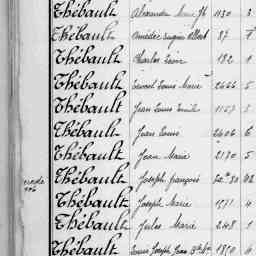 Thébault Alexandre Marie Jh 1130 3
Thébault Amédée Eugène Albert 87
Thébault Charles Louis 182 1
Thébault Ernest Louis Marie 2666 5
Thébault Jean Louis Emile 1157 3
Thébault Jean Louis 2606 6
Thébault Jean Marie 2170 5
Thébault Joseph François 30 62
Thébault Joseph Marie 1971 4
Thébault Jules Marie 248 1
Thébault Louis Joseph Jean 1890 6